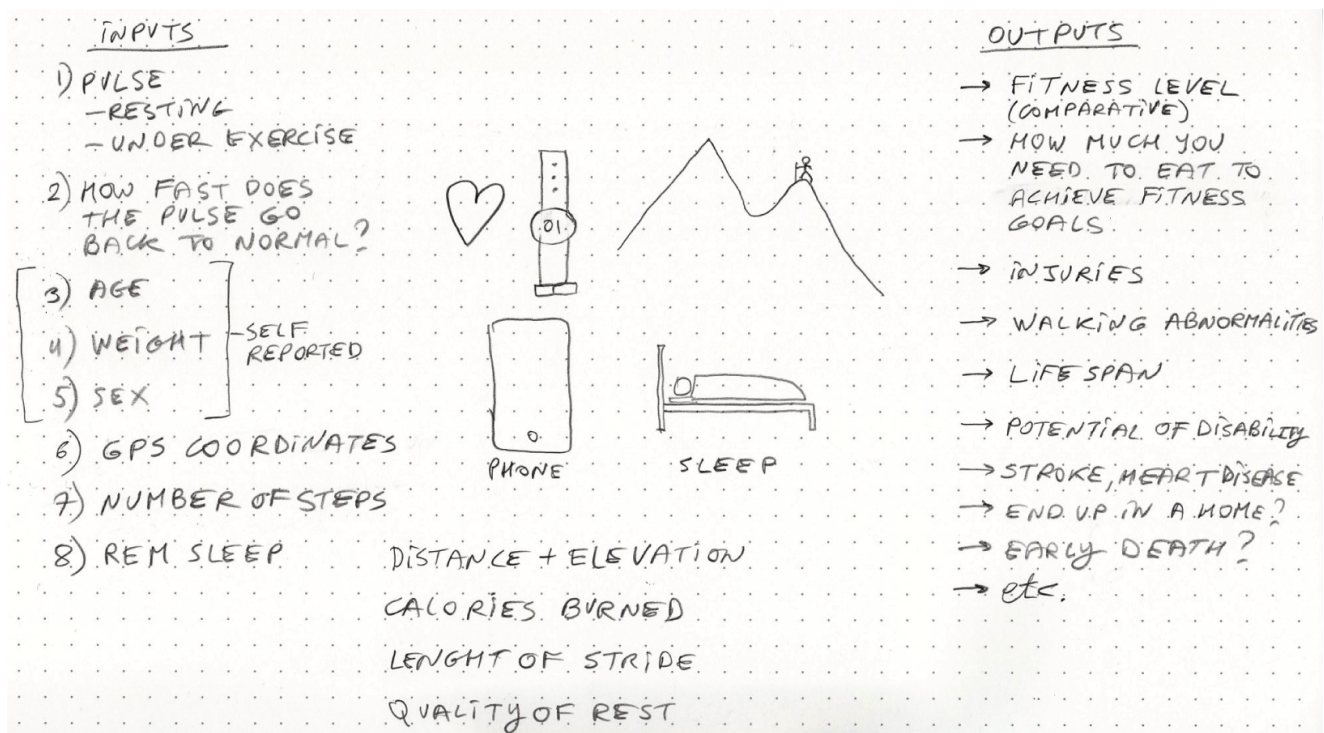 INPUTS
1) PULSE
- RESTING
- UNDER EXERCISE
2) HOW FAST DOES
THE PULSE GO
BACK TO NORMAL?
3) AGE
4) WEIGHT
5) SEX
- SELF
REPORTED
6) GPS COORDINATES
7) NUMBER OF STEPS
8) REM SLEEP
01
PHONE
SLEEP
DISTANCE + ELEVATION
CALORIES BURNED
LENGHT OF STRIDE
QUALITY OF REST
OUTPUTS
→ FITNESS LEVEL
(COMPARATIVE)
→ HOW MUCH YOU
NEED TO EAT TO
ACHIEVE FITNESS
GOALS
→ INJURIES
→ WALKING ABNORMALITIES
→ LIFE SPAN
→ POTENTIAL OF DISABILITY
→ STROKE, HEART DISEASE
→ END UP IN A HOME?
→ EARLY DEATH?
→ etc.